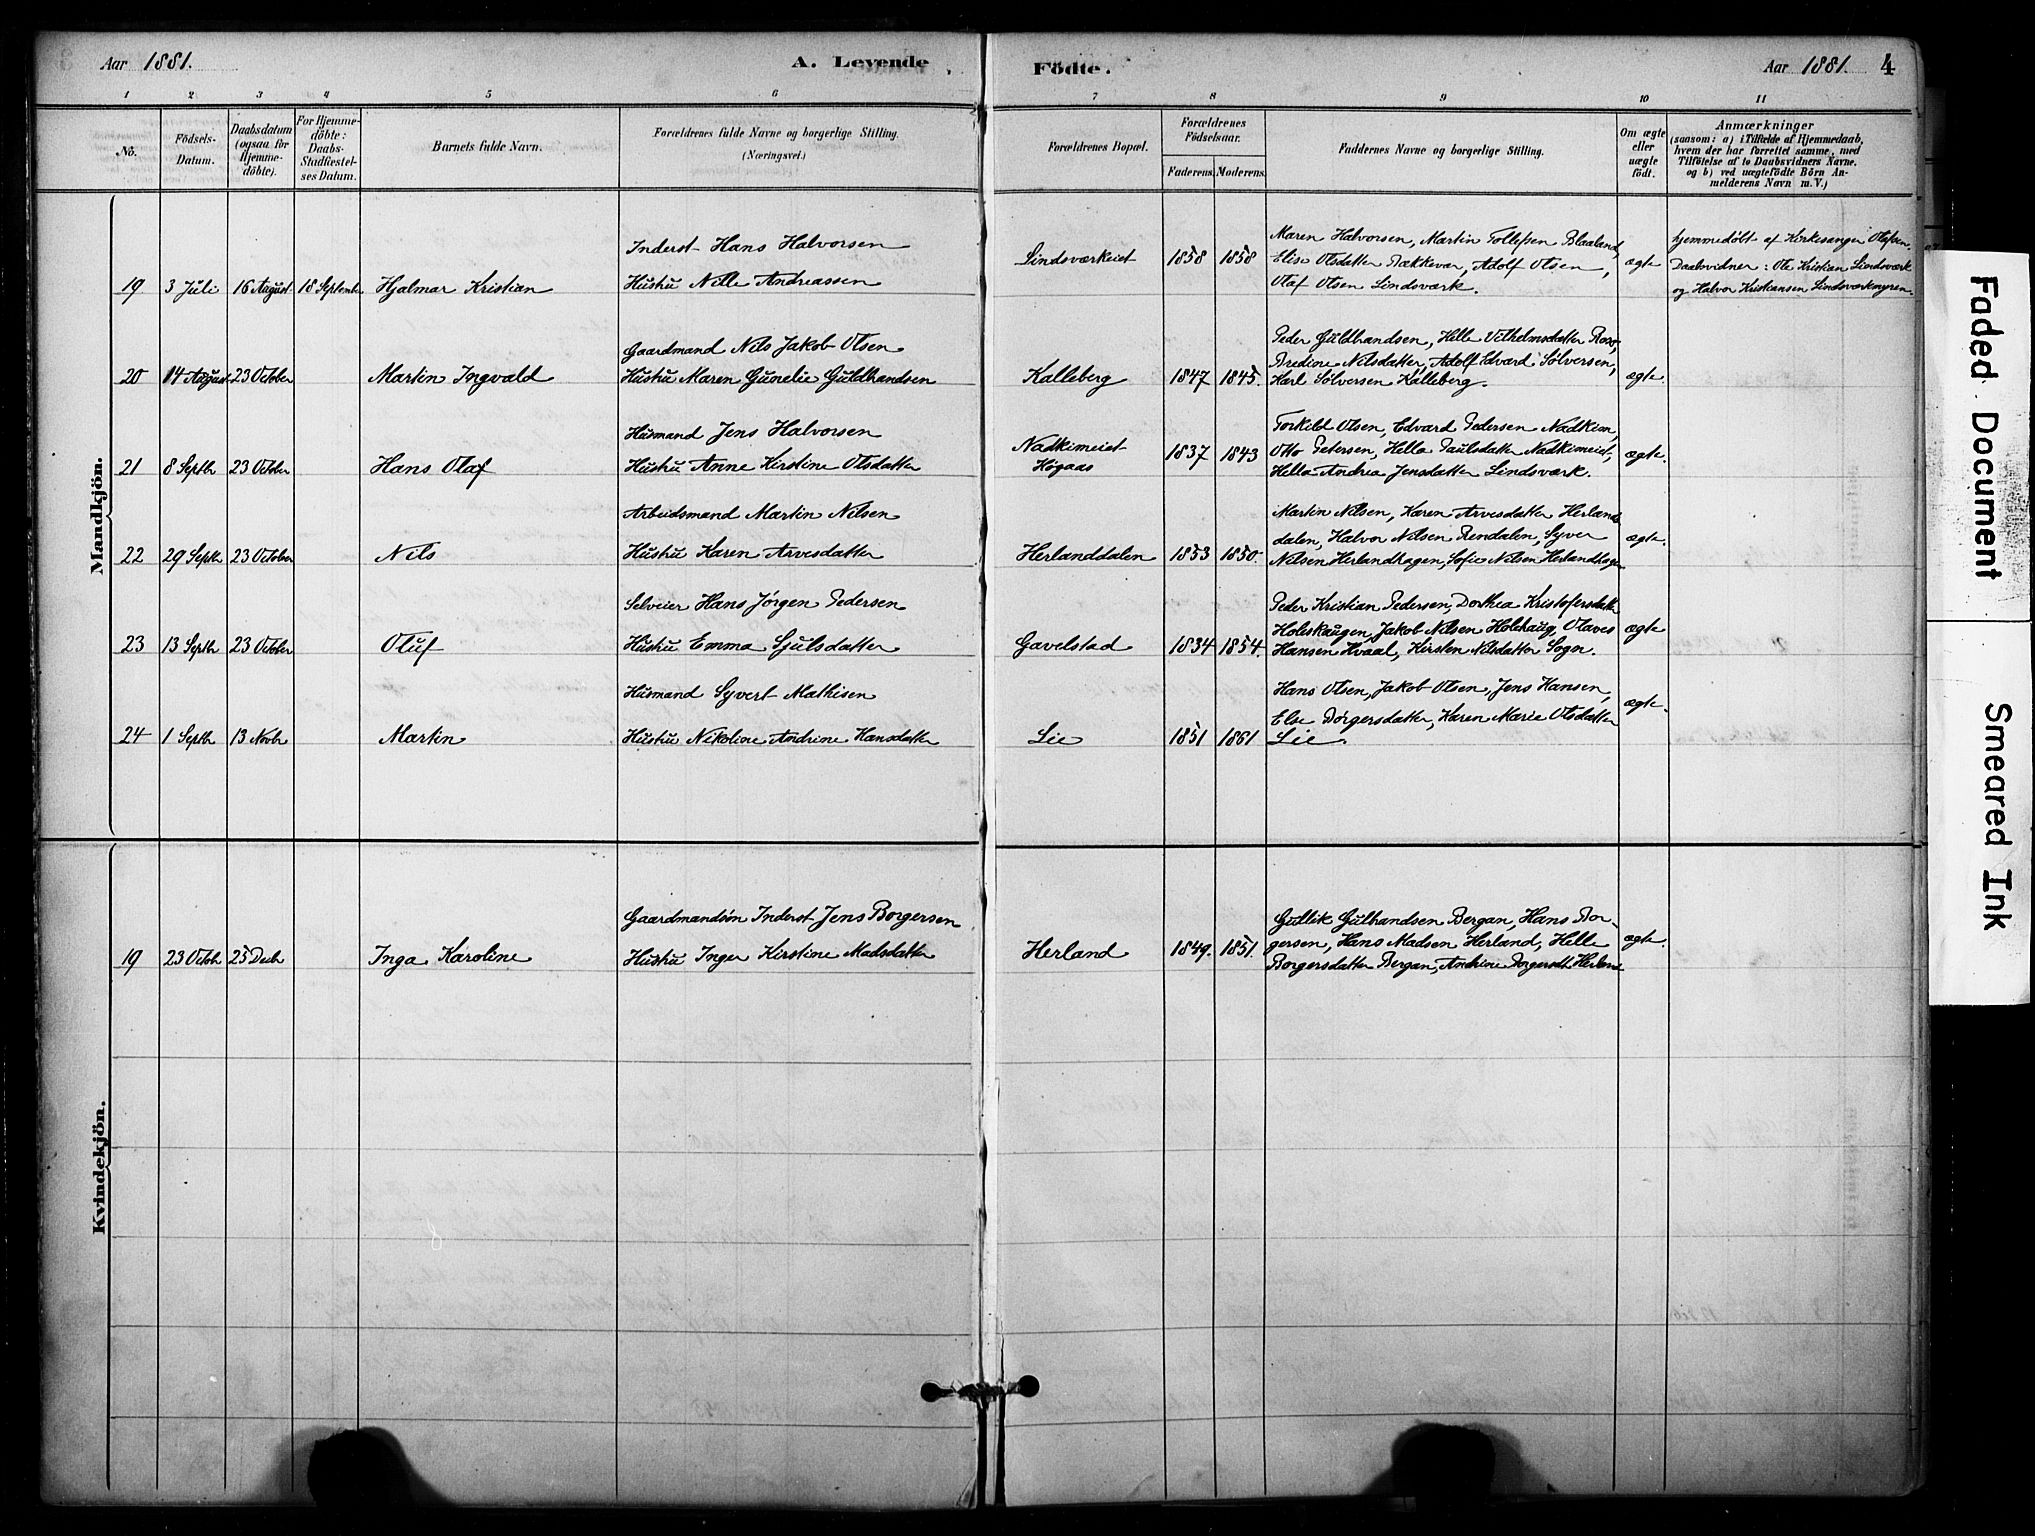 Aar 1881. A. Levende Födte. Aar 1881. 4
1 2 3 4 5 6 7 8 9 10 11
No.
Födsels-Datum.
Daabsdatum (ogsaa for Hjemme-döbte).
For Hjemme-döbte: Daabs-Stadfæstel-ses Datum.
Barnets fulde Navn.
Forældrenes fulde Navne og borgerlige Stilling.
(Næringsvei.)
Forældrenes Bopæl.
Forældrenes Födselsaar.
Faderens. Moderens.
Faddernes Navne og borgerlige Stilling.
Om ægte eller uægte födt.
Anmærkninger
(saasom: a) i Tilfælde af Hjemmedaab,
hvem der har forrettet samme, med
Tilföielse af to Daabsvidners Navne,
og b) ved uægtefödte Börn An-
melderens Navn m. V.)
Mandkjön.
Inderst Hans Halvorsen
19 3 Juli 16 August 18 Septembr Hjalmar Kristian Hustru Nille Andreassen
Lindsværkeiet 1858 1858
Maren Halvorsen, Martin Tollefsen Blaaland,
Elise Olsdatter Bækkevar, Adolf Olsen,
Olaf Olsen Lindsværk.
ægte
hjemmedøbt af Kirkesanger Olafsen.
Daabsvidner: Ole Kristian Lindsværk
og Halvor Kristiansen Lindsværkmyren.
Gaardmand Nils Jakob Olsen
20 14 August 23 October Martin Ingvald Hustru Maren Gunelie Guldbrandsen
Kalleberg 1847 1845.
Peder Guldbrandsen, Helle Vilhelmsdatter
Bredine Nilsdatter, Adolf Edvard Sølversen,
Karl Sølversen Kalleberg.
ægte.
Husmand Jens Halvorsen
21 8 Septbr 23 October Hans Olaf Hustru Anne Kirstine Olsdatter
Nadkimeiet
Høgaas
1837 1843
Torkild Olsen, Edvard Pedersen Nadkim,
Otto Petersen, Hella Paulsdatter Nadkimeiet,
Hella Andrea Jensdatter Lindsværk.
ægte.
Arbeidsmand Martin Nilsen
22 29 Septbr 23 October Nils Hustru Karen Arvesdatter
Herlanddalen 1853 1850.
Martin Nilsen, Karen Arvesdatter Herlands
dalen, Halvor Nilsen Rendalen, Syver
Nilsen Herlandhagen, Sofie Nilsen Herlandhagen
ægte.
Selveier Hans Jørgen Pedersen
23 13 Septbr 23 October Oluf Hustru Emma Sjulsdatter
Gavelstad 1834 1854.
Peder Kristian Pedersen, Dorthea Kristofersdatter
Holeskaugen, Jakob Nilsen Holehaug, Olaves
Hansen Hvaal, Kirsten Nilsdatter Sogn.
ægte
Husmand Syvert Mathisen
24 1 Septbr 13 Novbr Martin Hustru Nikoline Andrine Hansdatter
Lie 1851 1861
Hans Olsen, Jakob Olsen, Jens Hansen,
Else Borgersdatter, Karen Marie Olsdatter
Lie.
ægte.
Kvindekjön.
Gaardmandsøn Inderst Jens Borgersen
19 23 Octbr 25 Decbr Inga Karoline Hustru Inger Kirstine Madsdatter
Herland 1849. 1851.
Gullik Gulbrandsen Bergan, Hans Bor-
gersen, Hans Madsen Herland, Helle
Borgersdatter Bergan, Andrine Borgersdt. Herland
ægte.
Faded Document
Smeared Ink